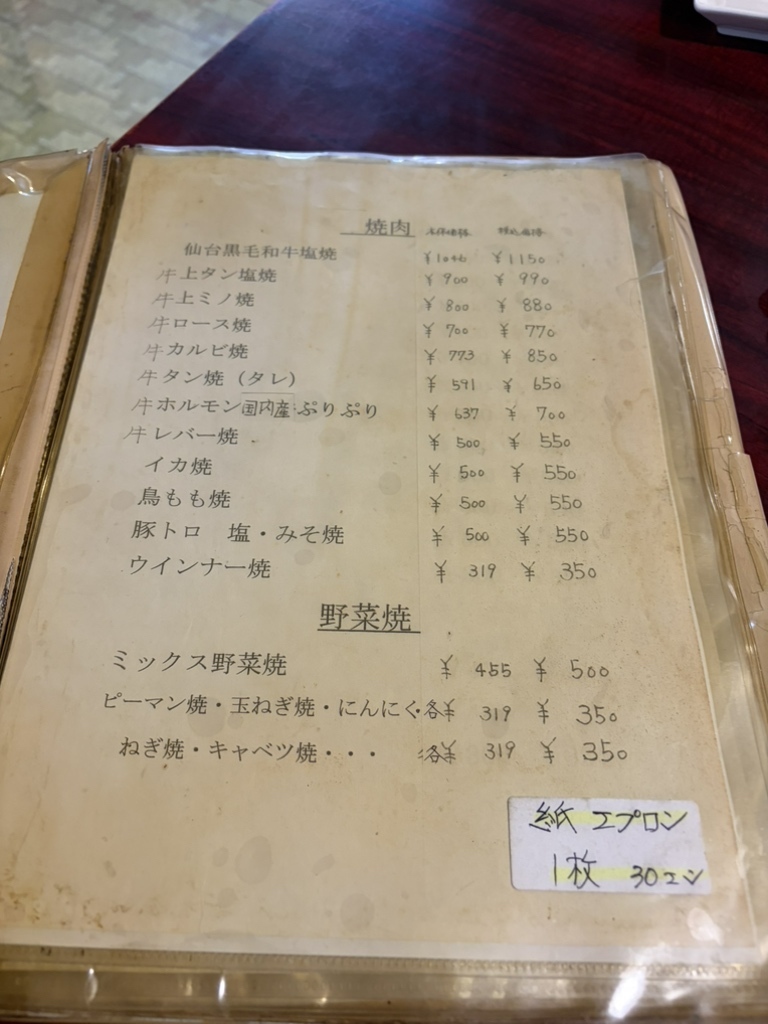 焼肉 本体価格 税込価格
仙台黒毛和牛塩焼 ¥1046 ¥1150
牛上タン塩焼 ¥900 ¥990
牛上ミノ焼 ¥800 ¥880
牛ロース焼 ¥700 ¥770
牛カルビ焼 ¥773 ¥850
牛タン焼（タレ） ¥591 ¥650
牛ホルモン国内産ぷりぷり ¥637 ¥700
牛レバー焼 ¥500 ¥550
イカ焼 ¥500 ¥550
鳥もも焼 ¥500 ¥550
豚トロ 塩・みそ焼 ¥500 ¥550
ウインナー焼 ¥319 ¥350
野菜焼
ミックス野菜焼 ¥455 ¥500
ピーマン焼・玉ねぎ焼・にんにく・各¥319 ¥350
ねぎ焼・キャベツ焼・・・ 各¥319 ¥350
紙エプロン
1枚 30エン